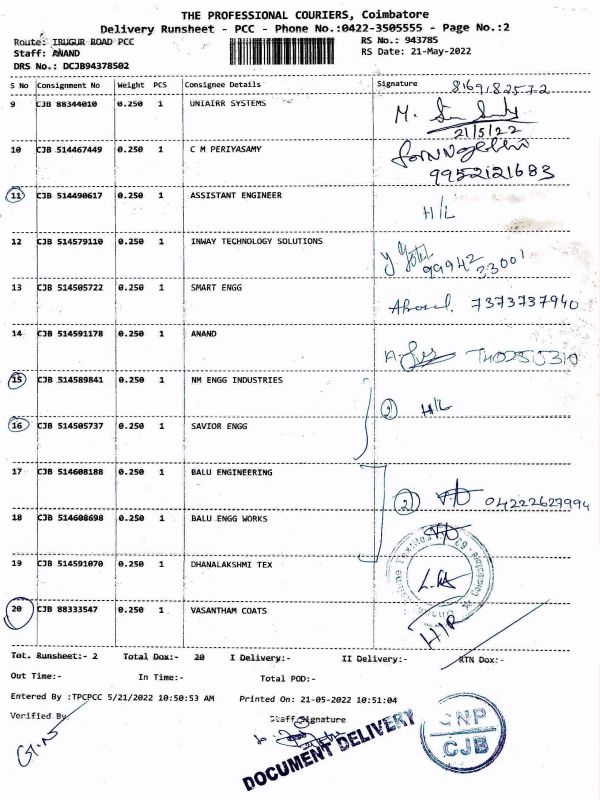 THE PROFESSIONAL COURIERS, Coimbatore
Delivery Runsheet - PCC - Phone No.:0422-3505555 - Page No.:2
Route: IRUGUR ROAD PCC RS No.: 943785
Staff: ANAND RS Date: 21-May-2022
DRS No.: DCJB94378502
S No Consignment No Weight PCS Consignee Details Signature
8169182572
9 CJB 88344010 0.250 1 UNIAIRR SYSTEMS
M.
21/5/22
10 CJB 514467449 0.250 1 C M PERIYASAMY
9952121683
11 CJB 514490617 0.250 1 ASSISTANT ENGINEER
H/L
12 CJB 514579110 0.250 1 INWAY TECHNOLOGY SOLUTIONS
99942 23001
13 CJB 514505722 0.250 1 SMART ENGG
7373737940
14 CJB 514591178 0.250 1 ANAND
15 CJB 514589841 0.250 1 NM ENGG INDUSTRIES
2 H/L
16 CJB 514505737 0.250 1 SAVIOR ENGG
17 CJB 514608188 0.250 1 BALU ENGINEERING
2 04222627994
18 CJB 514608698 0.250 1 BALU ENGG WORKS
19 CJB 514591070 0.250 1 DHANALAKSHMI TEX
20 CJB 88333547 0.250 1 VASANTHAM COATS
Tot. Runsheet:- 2 Total Dox:- 20 I Delivery:- II Delivery:- RTN Dox:-
Out Time:- In Time:- Total POD:-
Entered By :TPCPCC 5/21/2022 10:50:53 AM Printed On: 21-05-2022 10:51:04
Verified By Staff Signature
DOCUMENT DELIVERY
CJB